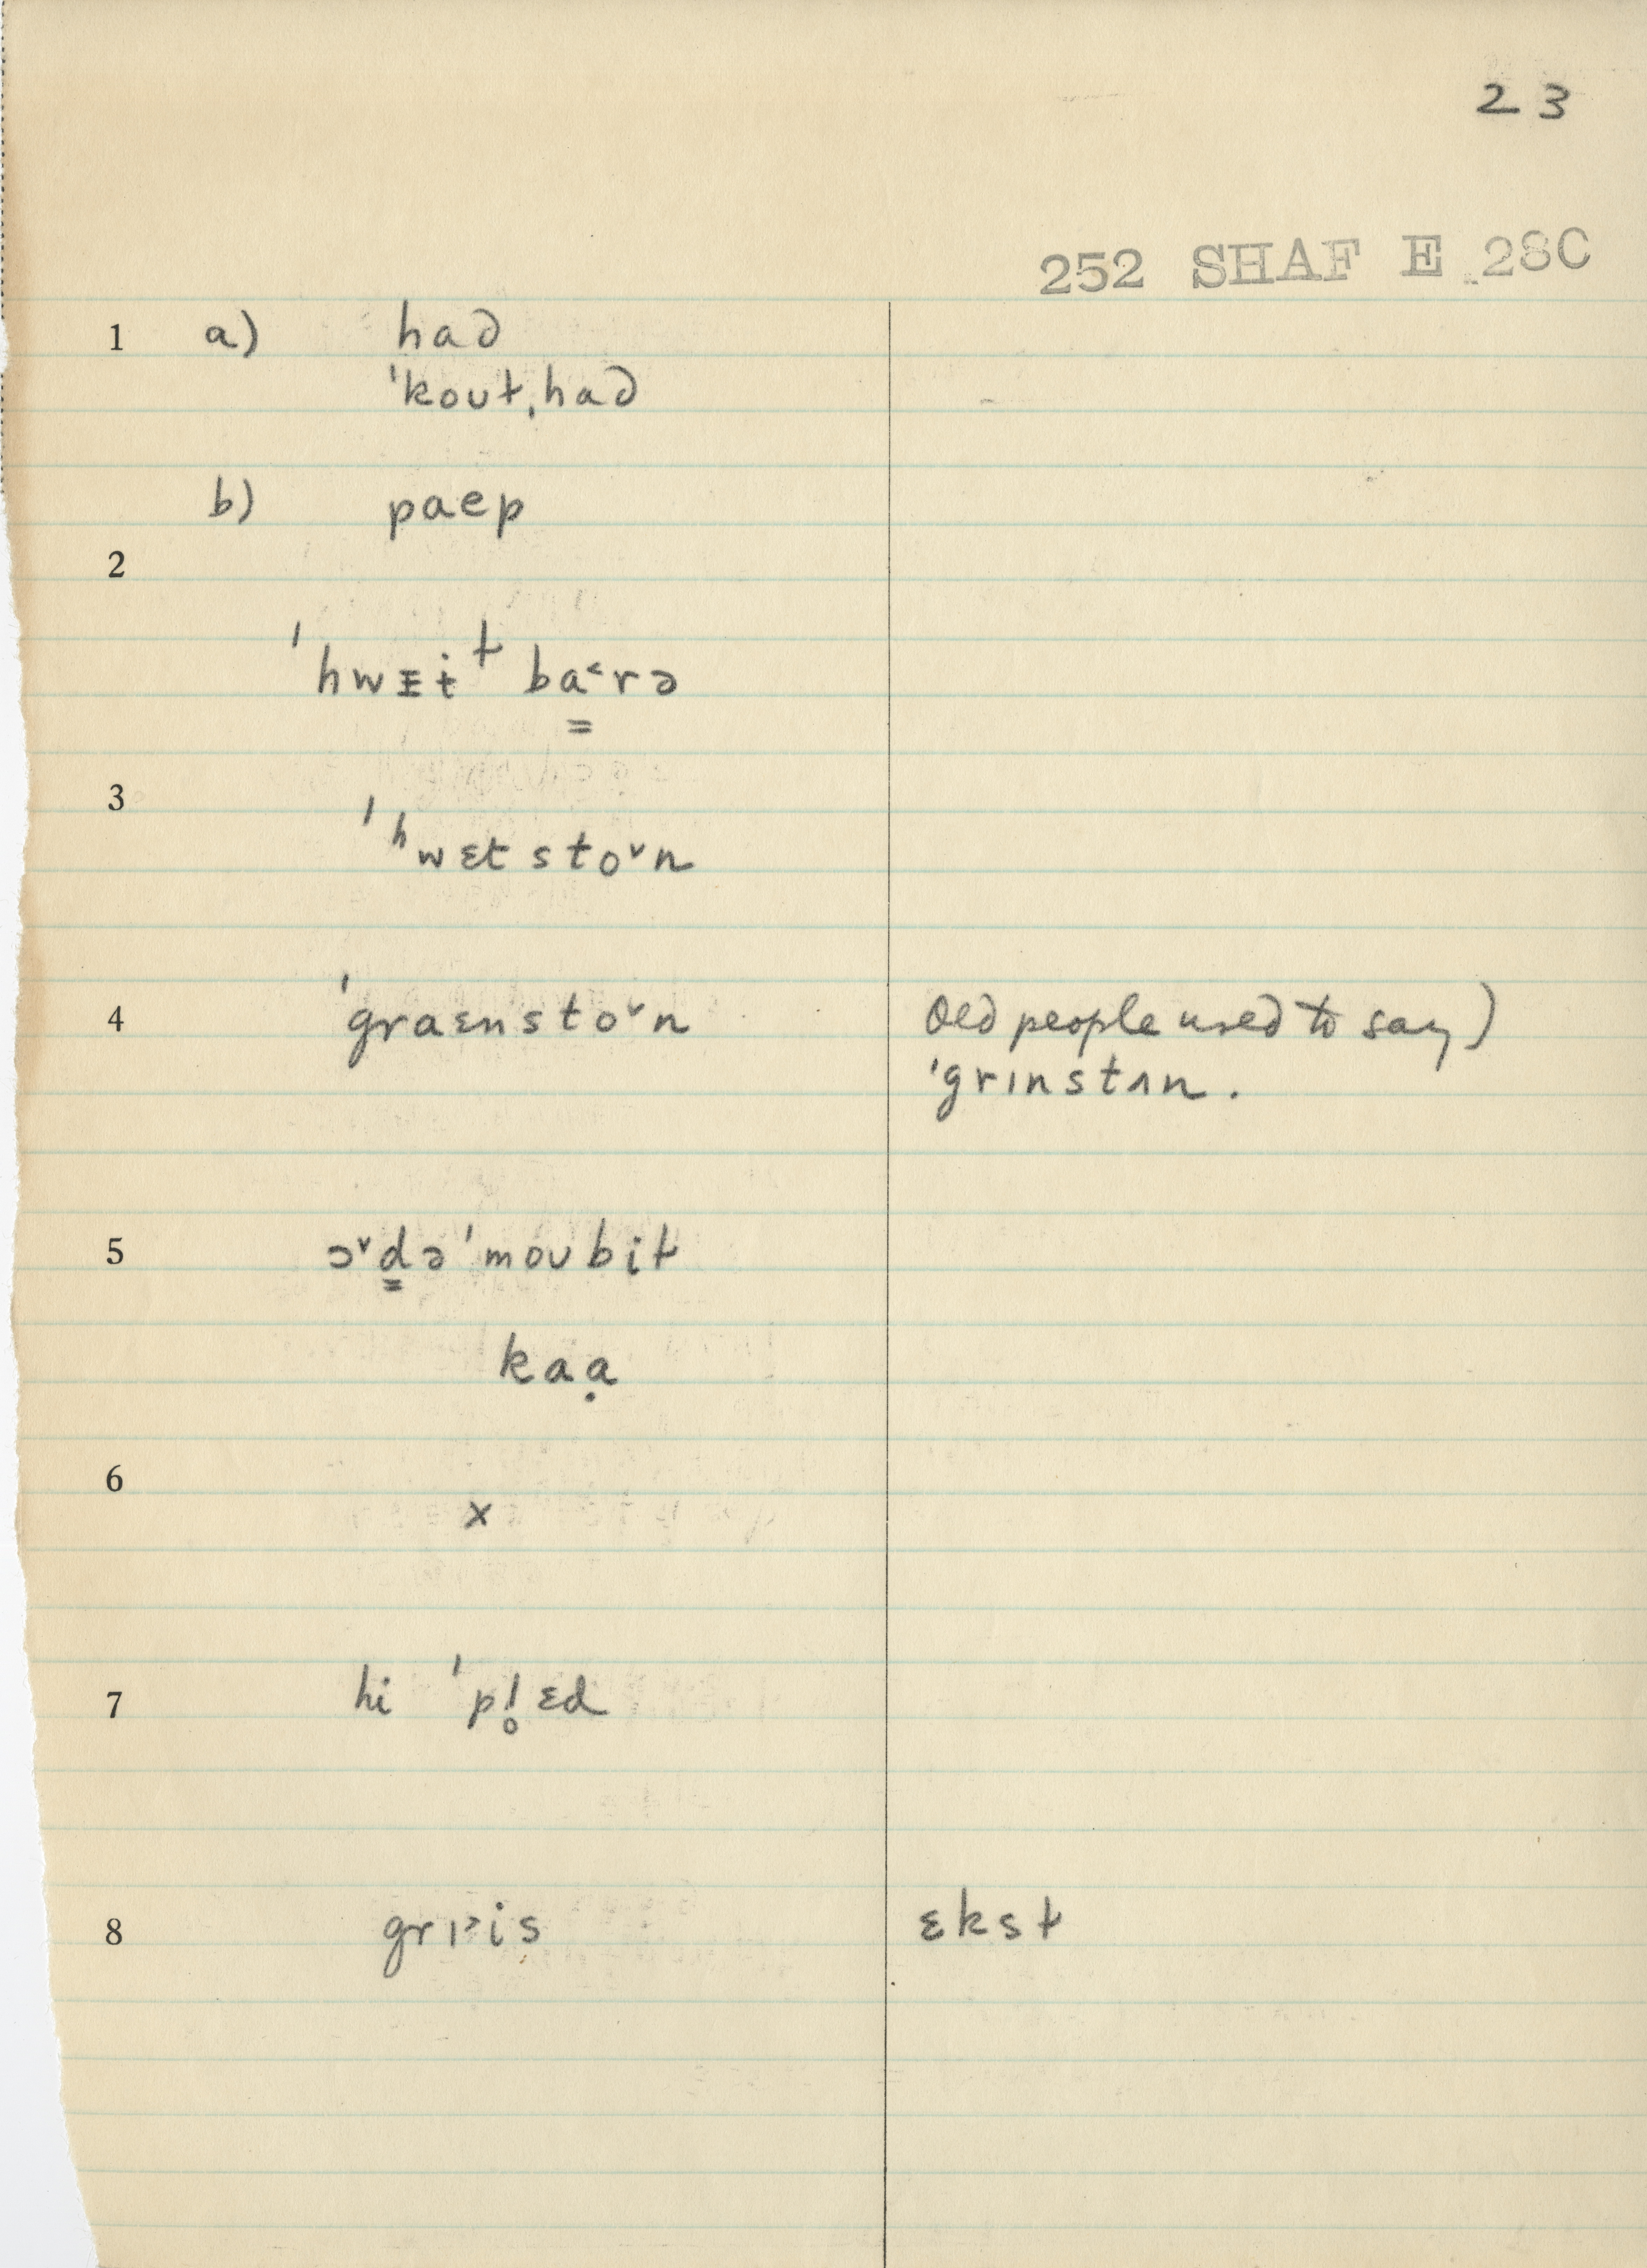 23
252 SHAF E 28C
1 a) had
ˈkout,had
b) paep
2
ˈhwɛɨt ba˂rə
3
ˈʰwɛtsto˅n
4 ˈgraɛnsto˅n Old people used to say)
ˈgrɪnstʌn.
5 ɔ˅d̳əˈmoʊbit
kaạ
6
x
7 hi ˈpl̥ɛd
8 grɪ˃is ɛkst